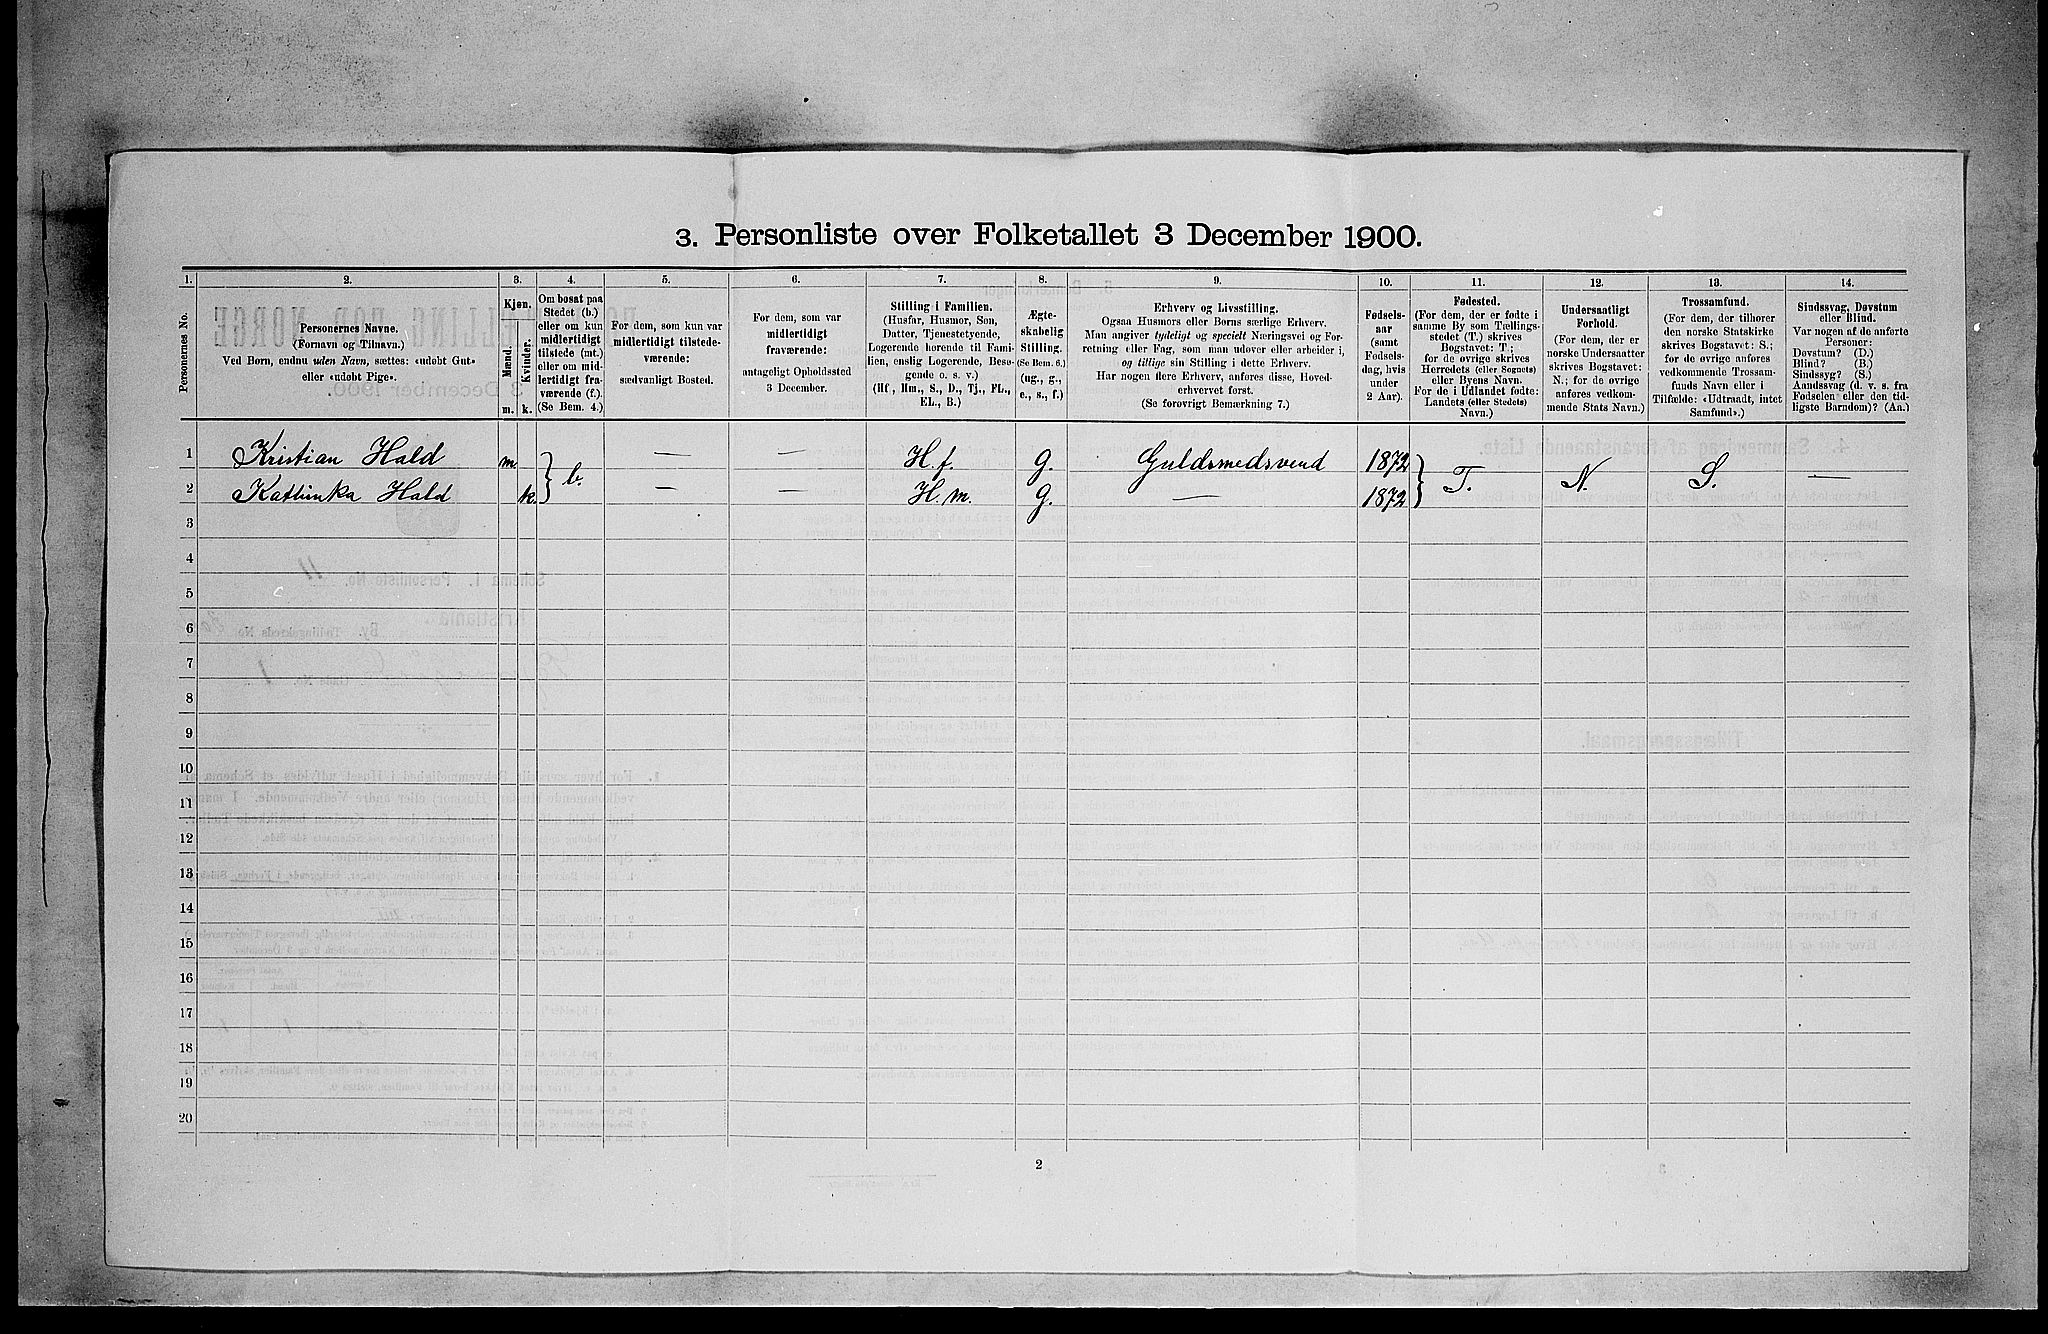 3. Personliste over Folketallet 3 December 1900.
1. 2. 3. 4. 5. 6. 7. 8. 9. 10. 11. 12. 13. 14.
Personernes No.
Personernes Navne.
(Fornavn og Tilnavn.)
Ved Børn, endnu uden Navn, sættes: «udøbt Gut»
eller «udøbt Pige».
Kjøn.
Mænd.
Kvinder.
m. k.
Om bosat paa
Stedet (b.)
eller om kun
midlertidigt
tilstede (mt.)
eller om mid-
lertidigt fra-
værende (f.).
(Se Bem. 4.)
For dem, som kun var
midlertidigt tilstede-
værende:
sædvanligt Bosted.
For dem, som var
midlertidigt
fraværende:
antageligt Opholdssted
3 December.
Stilling i Familien.
(Husfar, Husmor, Søn,
Datter, Tjenestetyende,
Logerende hørende til Fami-
lien, enslig Logerende, Besø-
gende o. s. v.)
(Hf, Hm., S., D., Tj., FL.,
EL., B.)
Ægte-
skabelig
Stilling.
(Se Bem. 6.)
(ug., g.,
e., s., f.)
Erhverv og Livsstilling.
Ogsaa Husmors eller Børns særlige Erhverv.
Man angiver tydeligt og specielt Næringsvei og For-
retning eller Fag, som man udøver eller arbeider i,
og tillige sin Stilling i dette Erhverv.
Har nogen flere Erhverv, anføres disse, Hoved-
erhvervet først.
(Se forøvrigt Bemærkning 7.)
Fødsels-
aar
(samt
Fødsels-
dag, hvis
under
2 Aar).
Fødested.
(For dem, der er fødte i
samme By som Tællings-
stedet (T.) skrives
Bogstavet: T.;
for de øvrige skrives
Herredets (eller Sognets)
eller Byens Navn.
For de i Udlandet fødte:
Landets (eller Stedets)
Navn.)
Undersaatligt
Forhold.
(For dem, der er
norske Undersaatter
skrives Bogstavet:
N.; for de øvrige
anføres vedkom-
mende Stats Navn.)
Trossamfund.
(For dem, der tilhører
den norske Statskirke
skrives Bogstavet: S.;
for de øvrige anføres
vedkommende Trossam-
funds Navn eller i
Tilfælde: «Udtraadt, intet
Samfund».)
Sindssvag, Døvstum
eller Blind.
Var nogen af de anførte
Personer:
Døvstum? (D.)
Blind? (B.)
Sindssyg? (S.)
Aandssvag (d. v. s. fra
Fødselen eller den tid-
ligste Barndom)? (Aa.)
1 Kristian Hald m. } b. — — H. f. g. Guldsmedsvend 1872 } T. N. S. —
2 Kathinka Hald k. — — H. m. g. — 1872
3
4
5
6
7
8
9
10
11
12
13
14
15
16
17
18
19
20
2